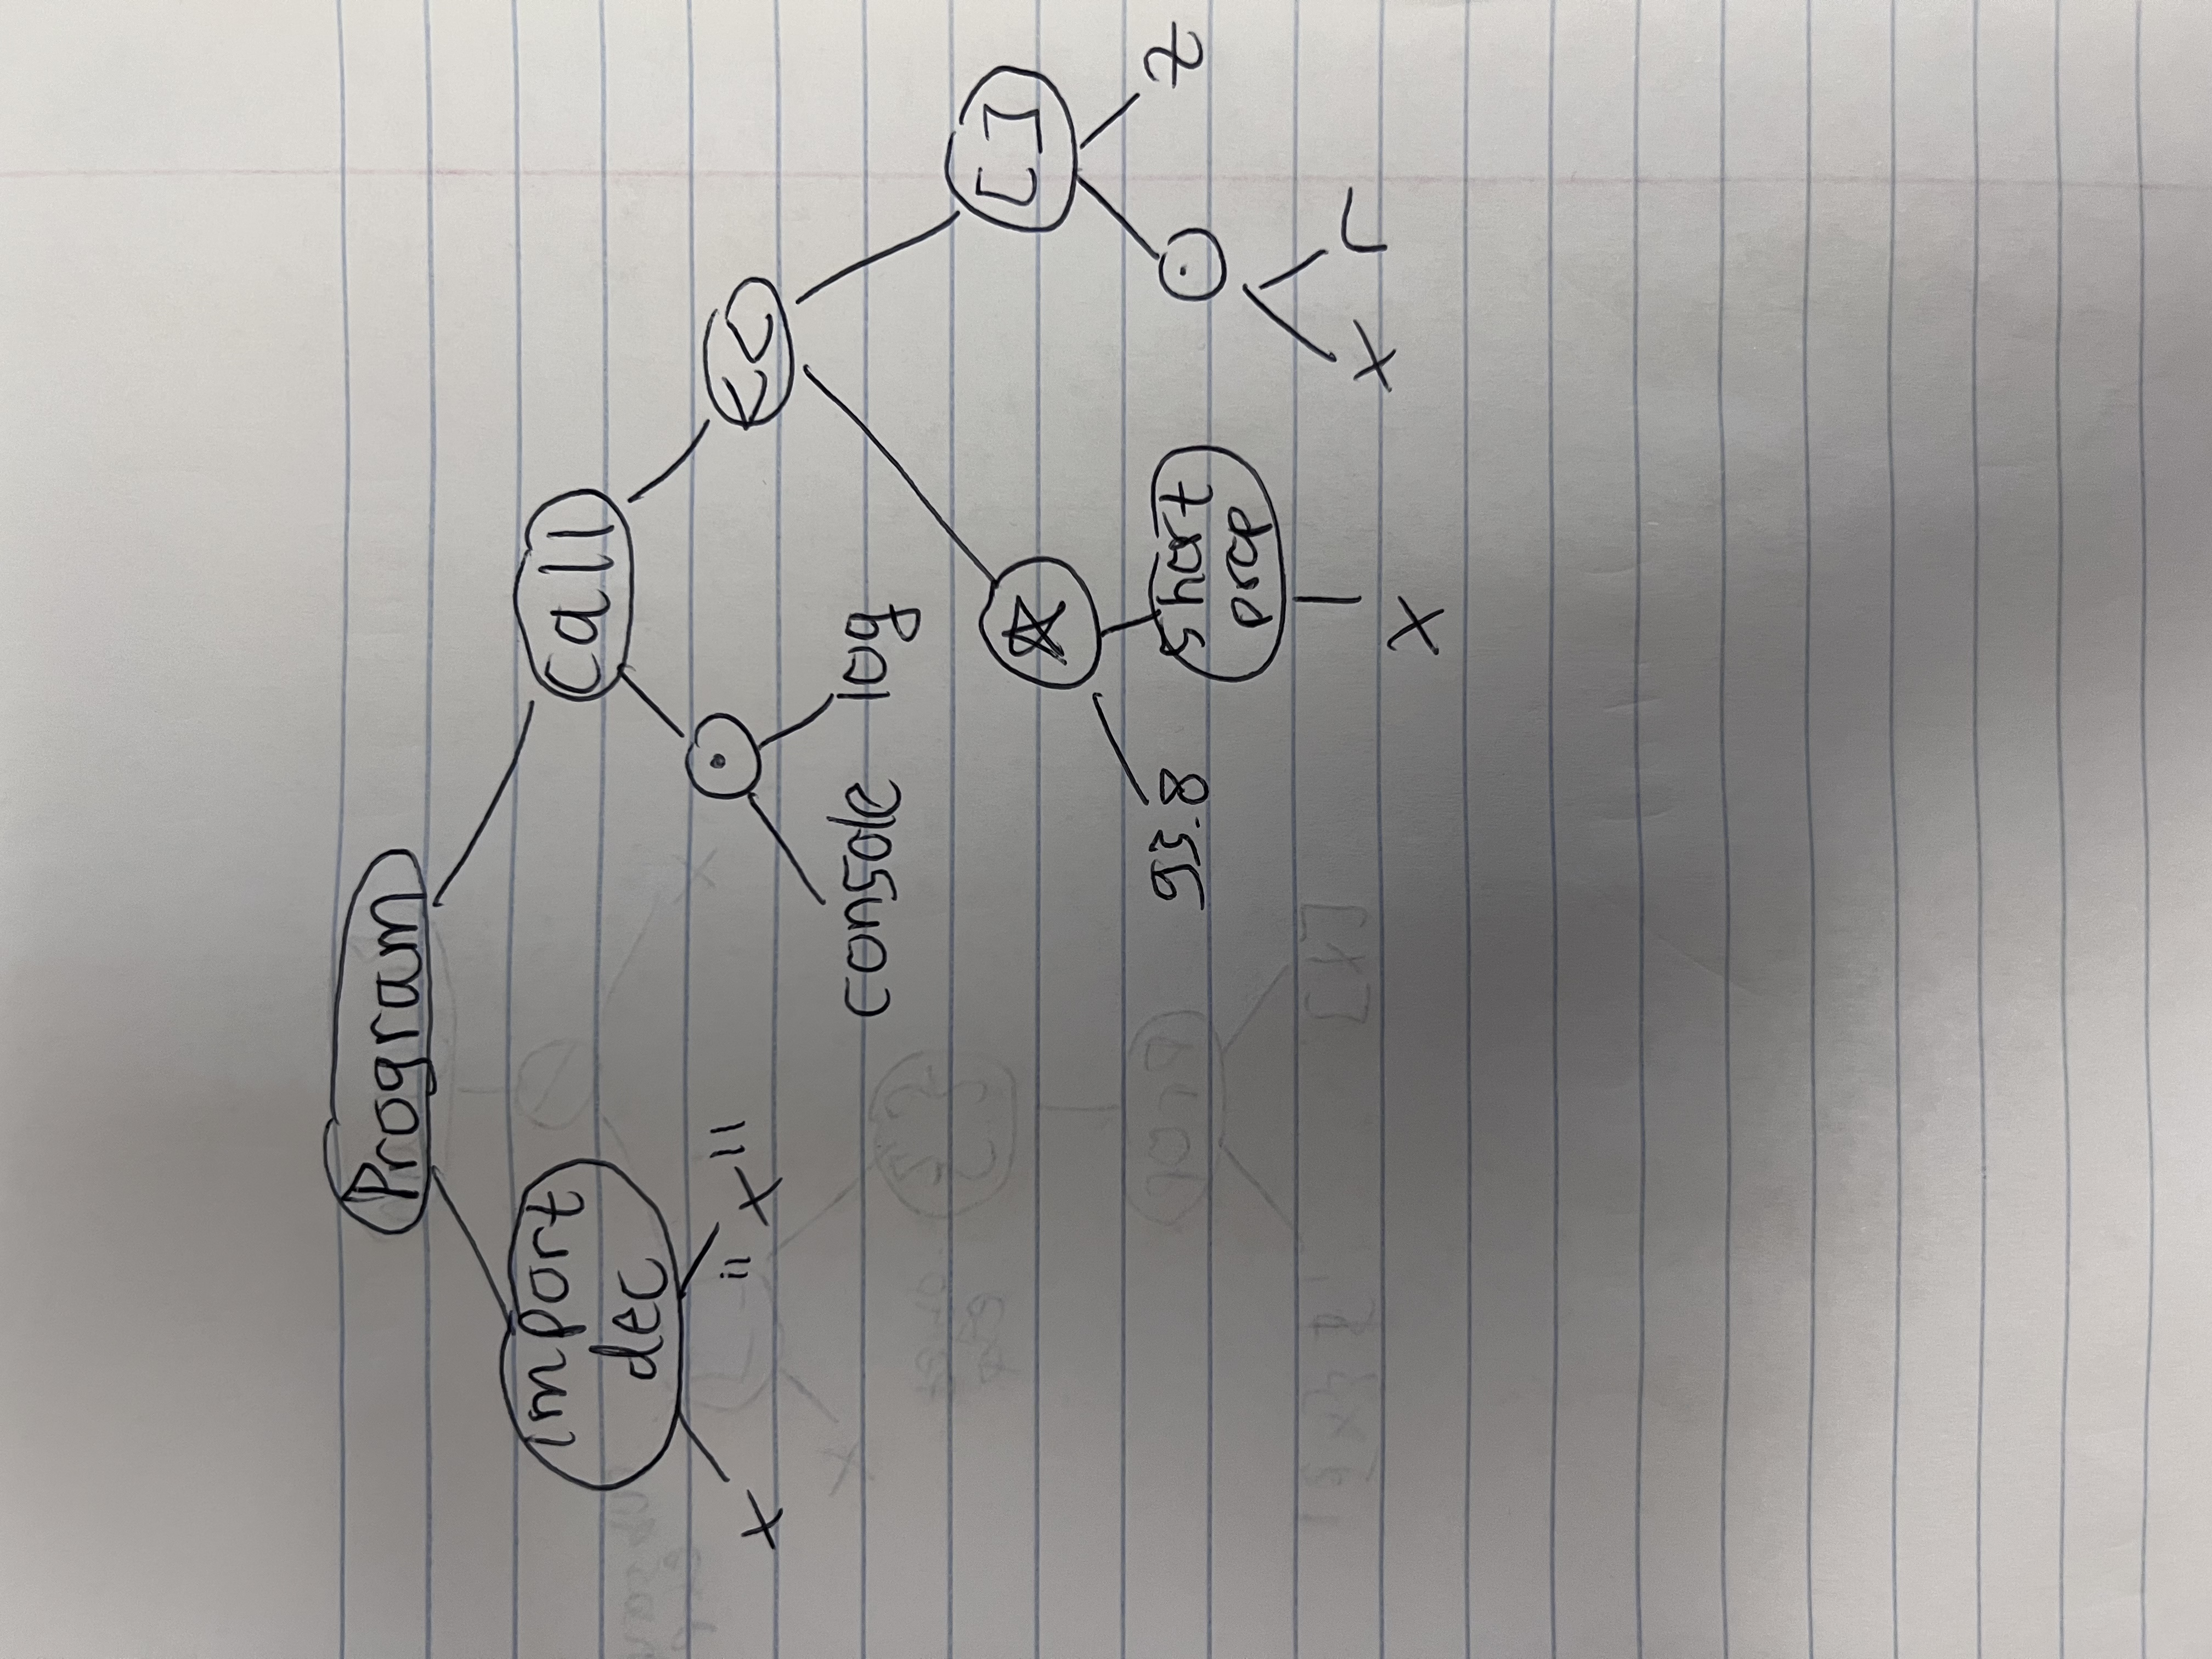 Program
import
dec
call
x "x"
.
<<
console log
*
[ ]
93.8
short
prop
.
z
x
x r